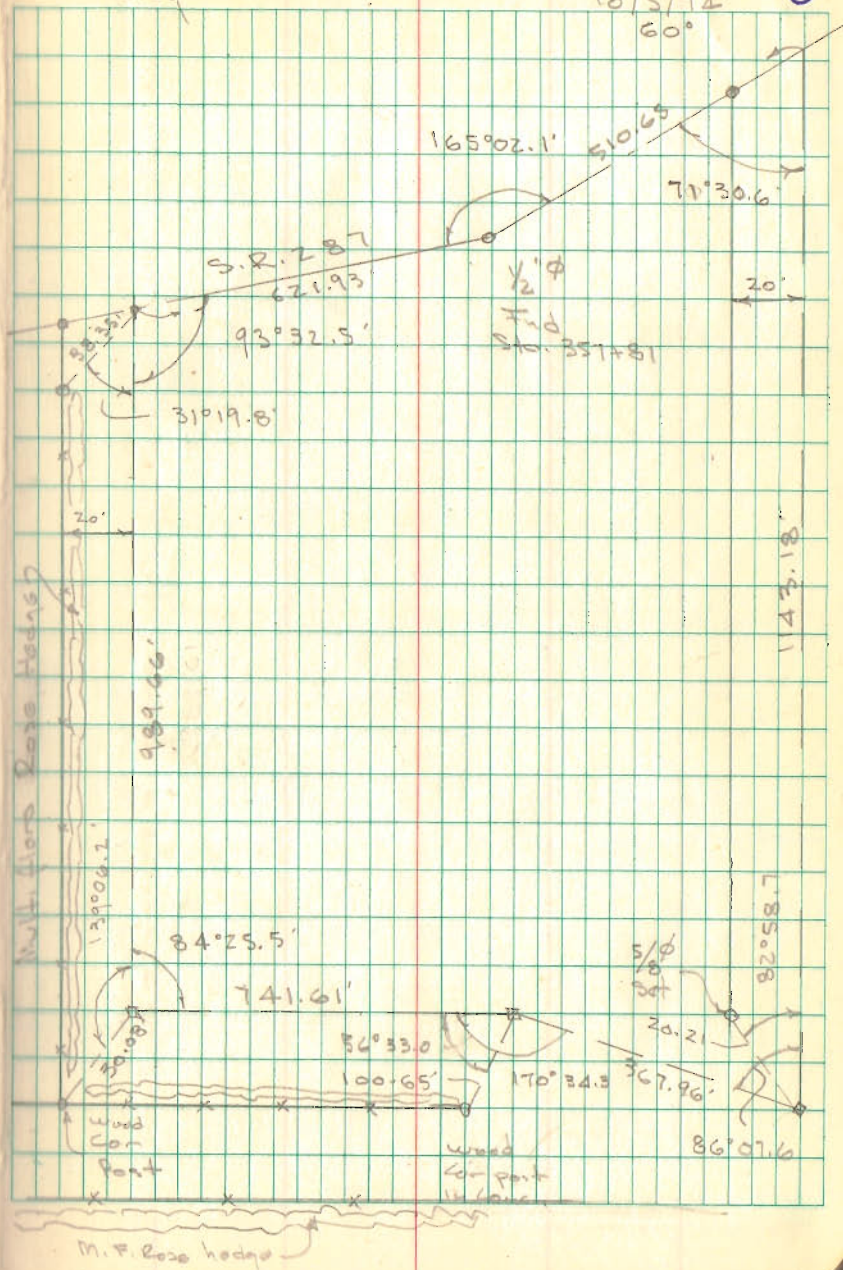 60°
165°02.1'
510.65
71°30.6'
S.R. 287
621.93
1/2"Φ
Fnd
Sta. 357+81
20'
38.35'
93°32.5'
31°19.8'
20'
1143.18'
Multi flora Rose Hedge
989.66'
139°06.2'
82°58.7
84°25.5'
741.61'
5/8Φ
Set
30.08'
56°33.0
20.21
100.65'
170°34.3
367.96'
86°07.6
Wood
Cor
Post
Wood
Cor post
in Conc.
M. F. Rose hedge